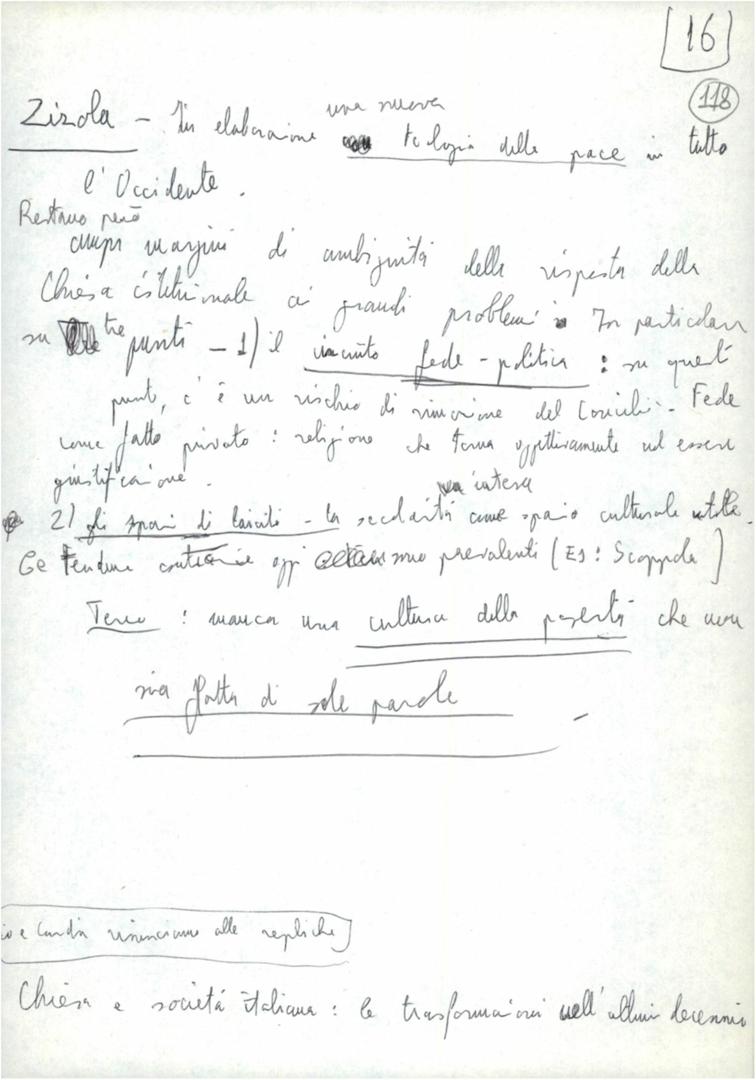 [16]
118
Zizola - In elaborazione una nuova teologia della pace in tutto
l'Occidente.
Restano però
ampi margini di ambiguità della risposta della
Chiesa istituzionale ai grandi problemi. In particolare
su tre punti - 1) il fede-politica: su questi
punti, c'è un rischio di rimozione del Concilio. Fede
come fatto privato: religione che torna oggettivamente ad essere
giustificazione.
2) gli spazi di laicità - la secolarità va intesa come spazio culturale
Le tendenze oggi sono prevalenti (Es: Scoppola)
Terzo: manca una cultura della povertà che non
sia fatta di sole parole
rinunciano alle repliche]
Chiesa e società italiana: le trasformazioni nell'ultimo decennio